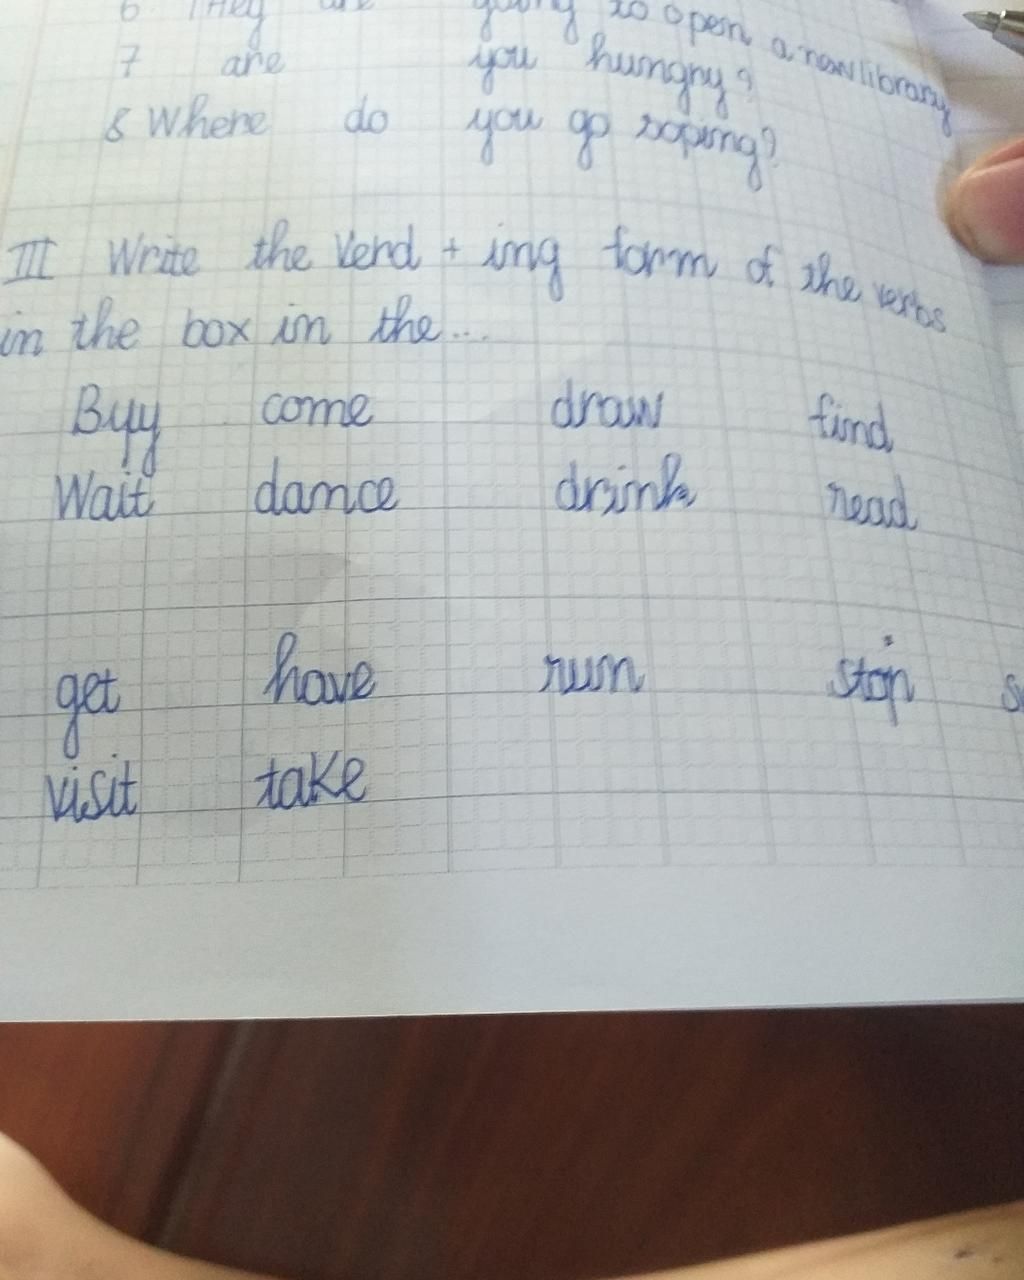 6 They are going to open a new library
7 are you hungry?
8 Where do you go soping?
III Write the Verd + ing form of the verbs
in the box in the...
Buy come draw find
Wait dance drink read
get have run stop
visit take